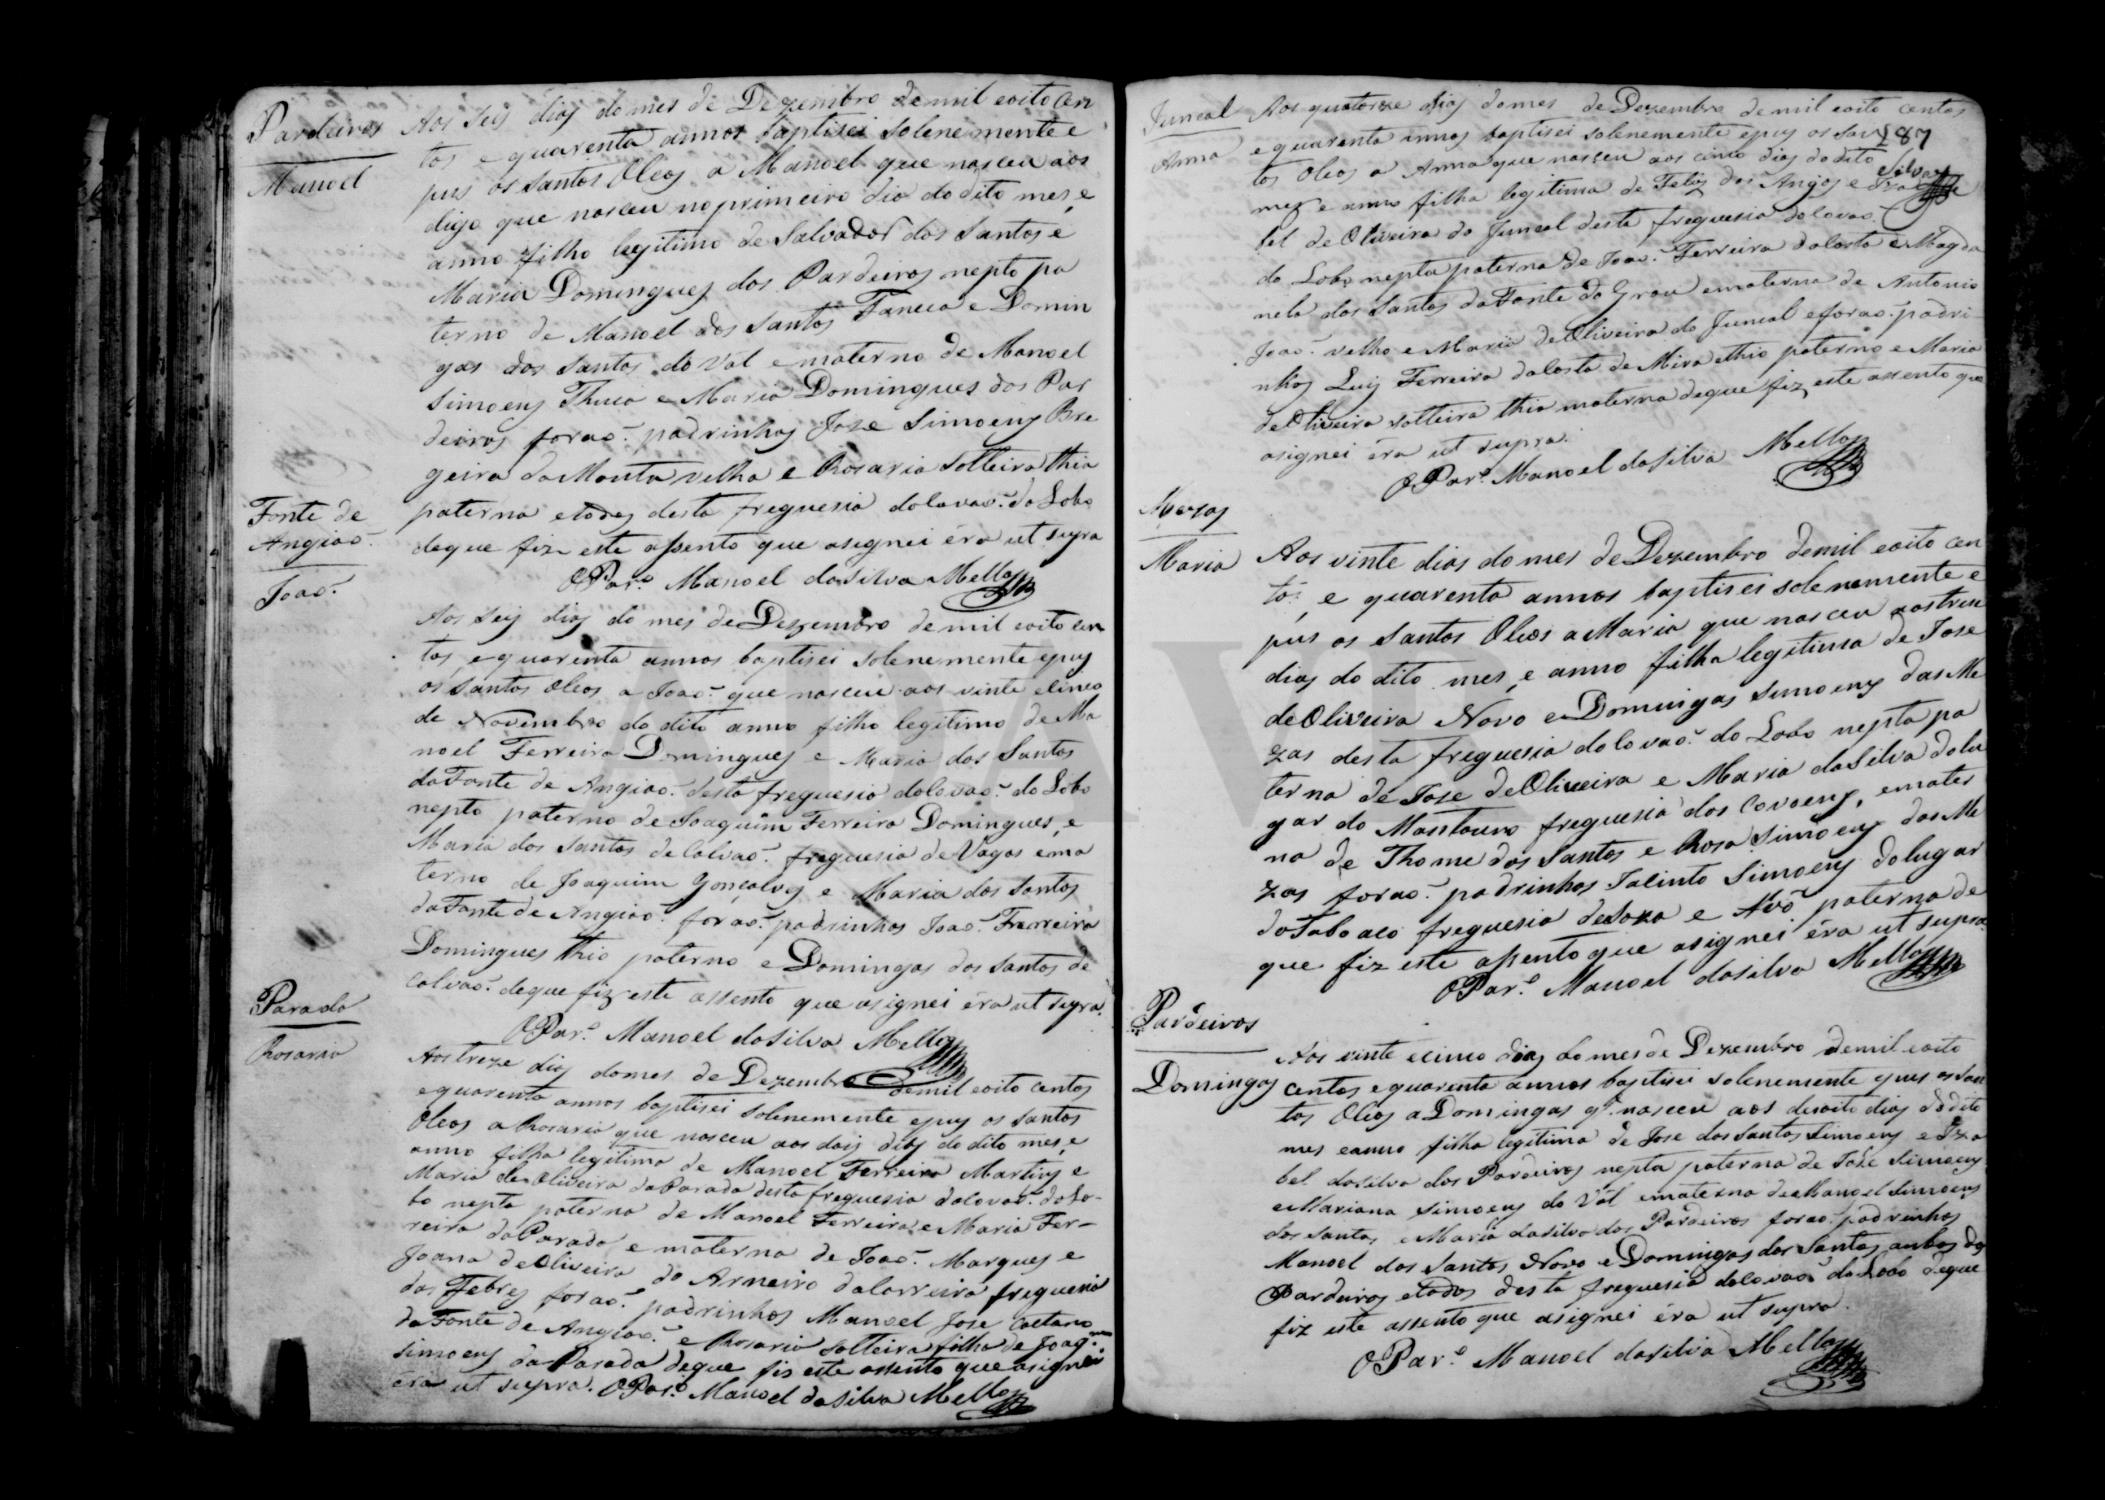 Pardeiros
Manoel
Aos seis dias do mes de Dezembro de mil eoito cen
tos e quarenta annos baptisei solenemente e
pus os santos Oleos a Manoel que nasceu aos
digo que nasceu no primeiro dia do dito mes, e
anno filho legitimo de Salvador dos Santos e
Maria Domingues dos Pardeiros nepto pa
terno de Manoel dos Santos Faneca e Domin
gas dos Santos do Val e materno de Manoel
Simoens Thuca e Maria Domingues dos Par
deiros forao padrinhos Joze Simoens Bre
geira da Monta velha e Rosaria solteira thia
paterna e todos desta freguesia do Covao do Lobo
deque fiz este assento que asignei éra ut supra
O Par.º Manoel da Silva Mello
Fonte de
Angiao
Joao
Aos seis dias do mes de Dezembro de mil eoito cen
tos, e quarenta annos baptisei solenemente epus
os santos oleos a Joao que nasceu aos vinte e cinco
de Novembro do dito anno filho legitimo de Ma
noel Ferreira Domingues e Maria dos Santos
da Fonte de Angiao desta freguesia do Covao do Lobo
nepto paterno de Joaquim Ferreira Domingues, e
Maria dos Santos de Calvao freguesia de Vagos e ma
terno de Joaquim Gonçalves e Maria dos Santos
da Fonte de Angiao forao padrinhos Joao Ferreira
Domingues thio paterno e Domingas dos Santos de
Calvao deque fiz este assento que asignei éra ut supra.
O Par.º Manoel da Silva Mello
Parada
Rosaria
Aos treze dias do mes de Dezembro de mil eoito centos
e quarenta annos baptisei solenemente epus os santos
Oleos a Rosaria que nasceu aos dois dias do dito mes, e
anno filha legitima de Manoel Ferreira Martins e
Maria de Oliveira da Parada desta freguesia do Covao do Lo-
bo nepta paterna de Manoel Ferreira e Maria Fer-
reira da Parada e materna de Joao Marques e
Joana de Oliveira do Arneiro da Correira freguesia
das Febres forao padrinhos Manoel Jose Caetano
da Fonte de Angiao e Rosaria solteira filha de Joaq.
Simoens da Parada deque fiz este assento que asignei
éra ut supra. O Par.º Manoel da Silva Mello
187
Silva
Juncal
Anna
Aos quatorze dias do mes de Dezembro de mil eoito centos
e quarenta annos baptisei solenemente epus os san
tos Oleos a Anna que nasceu aos cinco dias do dito
mez e anno filha legitima de Felis dos Anjos e Iza
bel de Oliveira do Juncal desta freguesia do Covao
do Lobo nepta paterna de Joao Ferreira da Costa e Magda
nela dos Santos da Fonte do Grou e materna de Antonio
Joao velho e Maria de Oliveira do Juncal e forao padri-
nhos Luis Ferreira da Costa de Mira e thio paterno e Maria
de Oliveira solteira thia materna deque fiz este assento que
asignei éra ut supra.
O Par.º Manoel da Silva Mello
Mezas
Maria
Aos vinte dias do mes de Dezembro de mil eoito cen
tos, e quarenta annos baptisei solenemente e
pus os santos Oleos a Maria que nasceu aos treze
dias do dito mes, e anno filha legitima de Jose
de Oliveira Novo e Domingas Simoens das Me
zas desta freguesia do Covao do Lobo nepta pa
terna de Jose de Oliveira e Maria da Silva do lu
gar do Montouro freguesia dos Covoens, e mater
na de Thome dos Santos e Rosa Simoens das Me
zas forao padrinhos Jacinto Simoens do lugar
do Taboaco freguesia de Soza e Avó paterna de
que fiz este assento que asignei éra ut supra
O Par.º Manoel da Silva Mello
Pardeiros
Domingas
Aos vinte e cinco dias do mes de Dezembro de mil eoito
centos e quarenta annos baptisei solenemente epus os san
tos Oleos a Domingas q. nasceu aos desoito dias do dito
mes e anno filha legitima de Jose dos Santos Simoens e Iza
bel da Silva dos Pardeiros nepta paterna de Joze Simoens
e Mariana Simoens do Val e materna de Manoel Simoens
dos Santos e Maria da Silva dos Pardeiros forao padrinhos
Manoel dos Santos Novo e Domingas dos Santos ambos dos
Pardeiros e todos desta freguesia do Covao do Lobo deque
fiz este assento que asignei éra ut supra.
O Par.º Manoel da Silva Mello